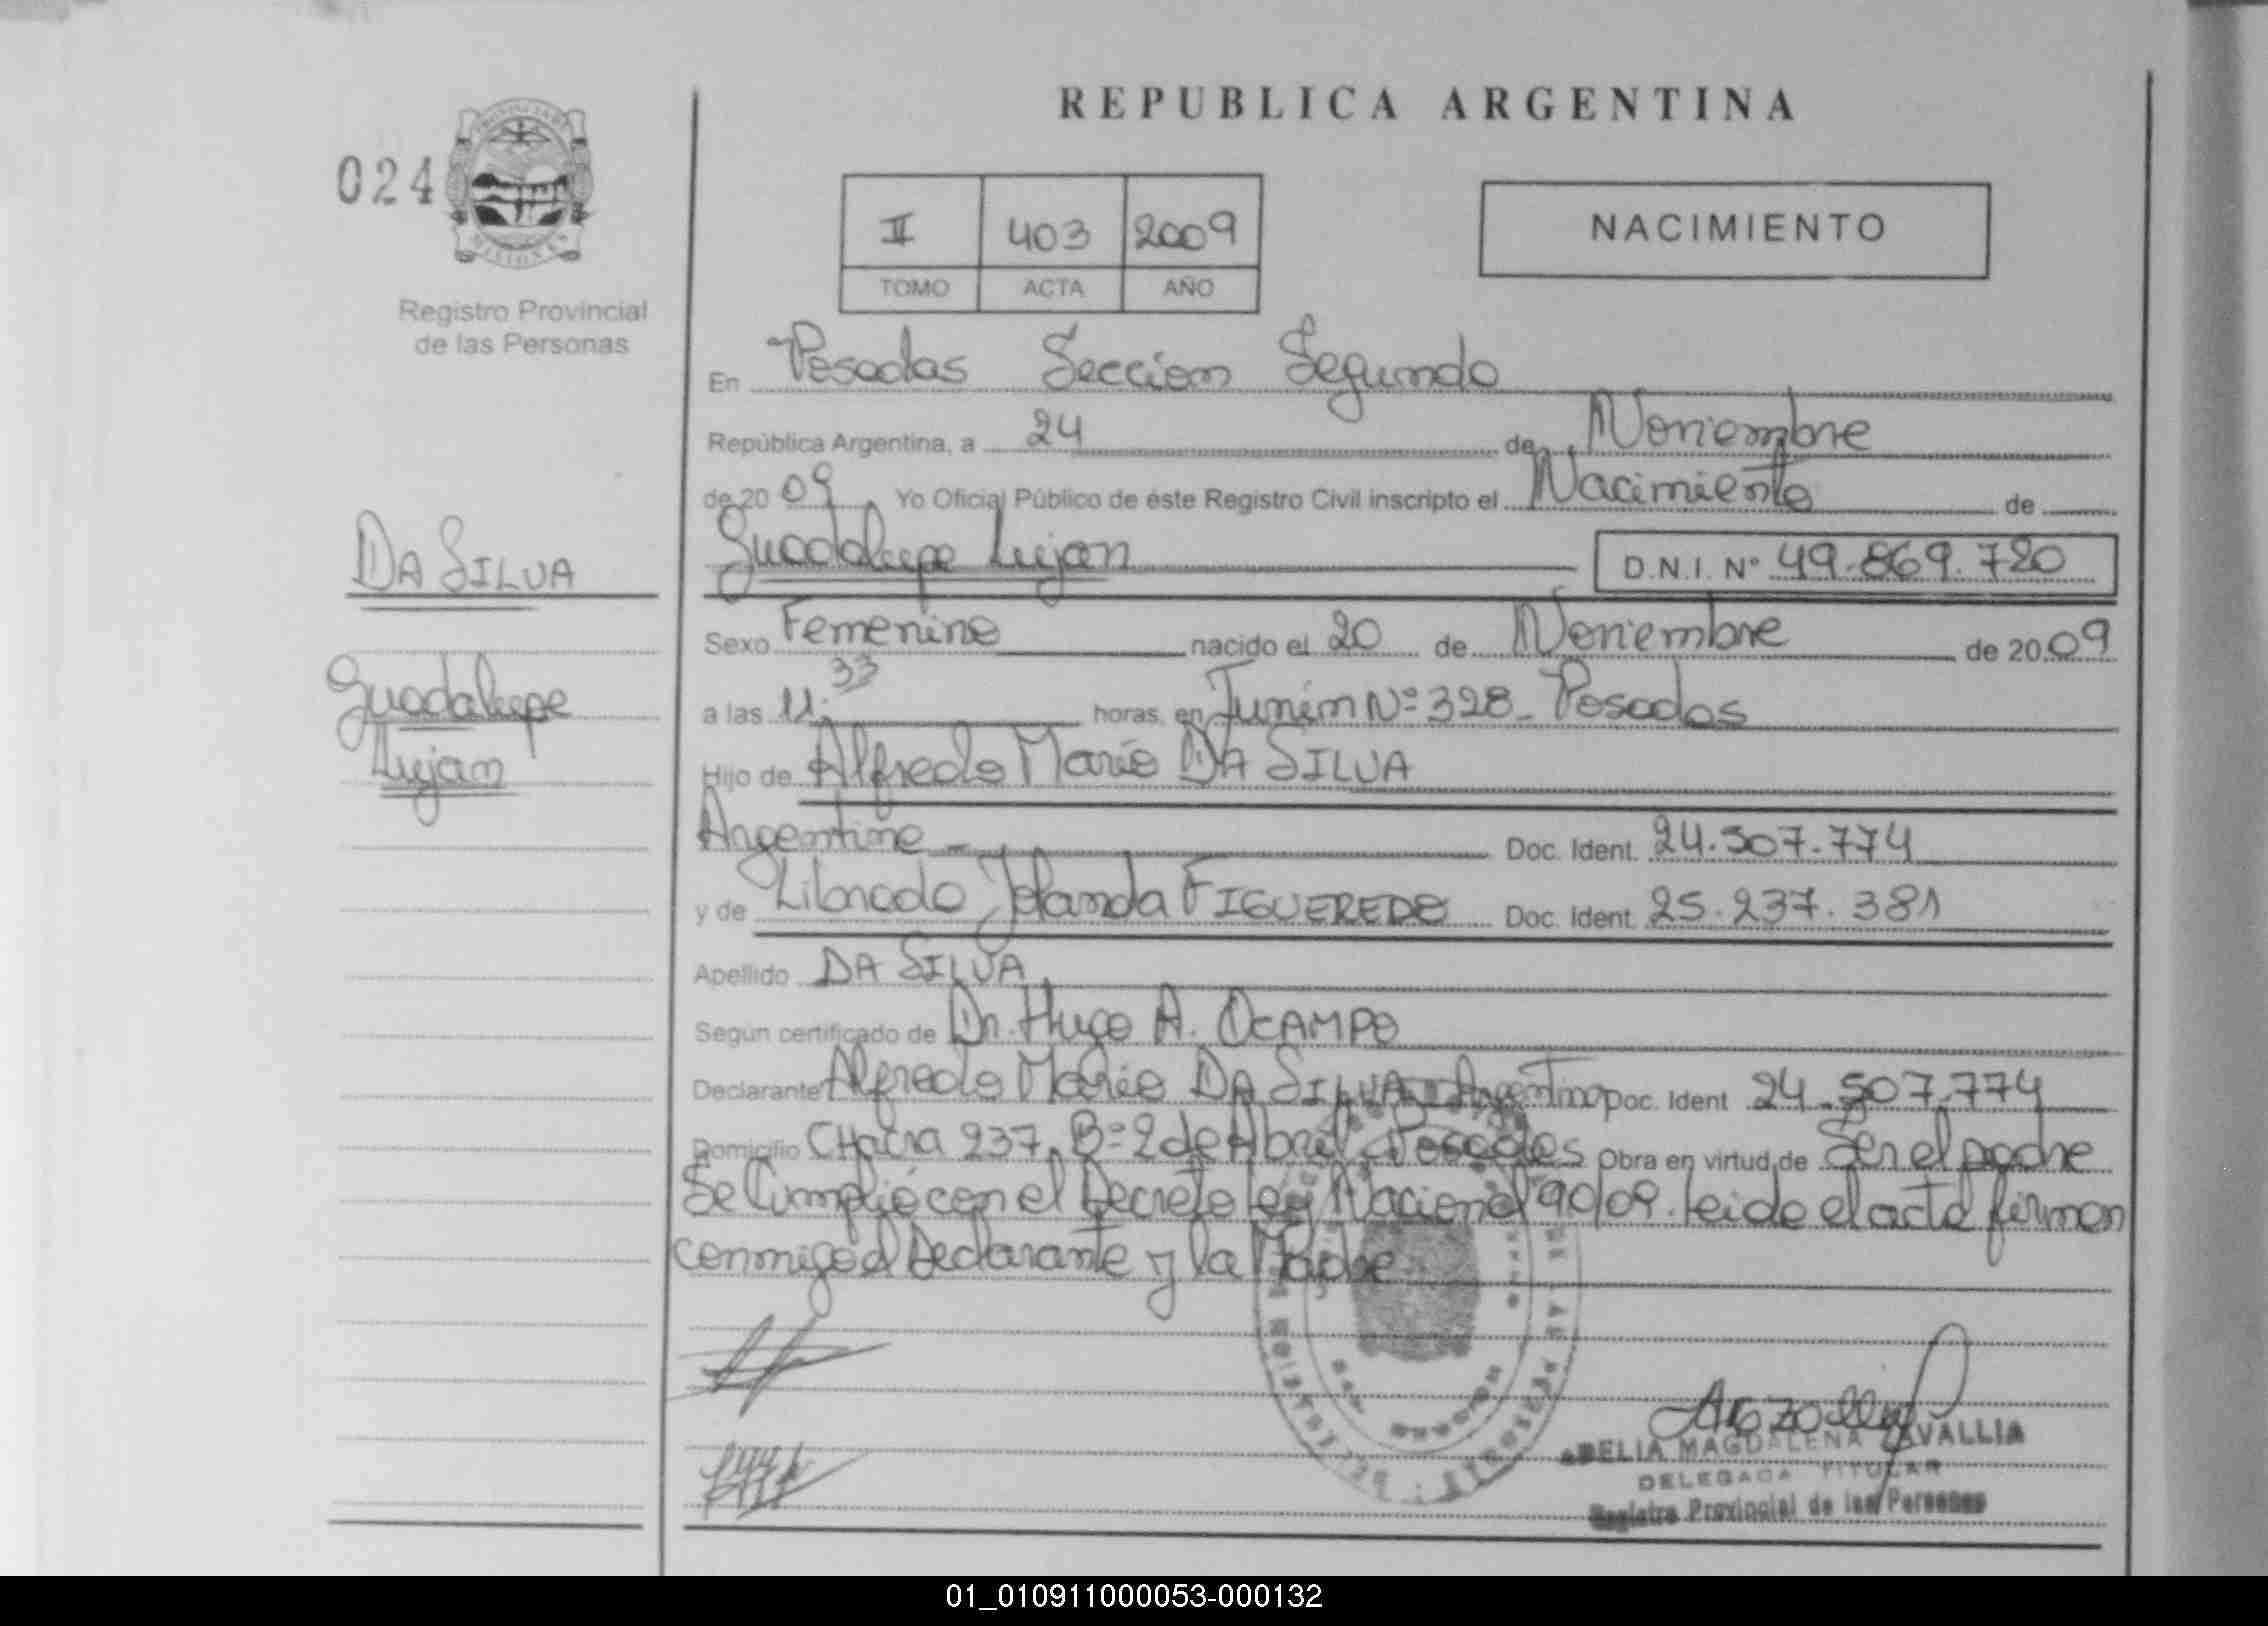 REPUBLICA ARGENTINA
024
PROVINCIA DE
MISIONES
Registro Provincial
de las Personas
II 403 2009
TOMO ACTA AÑO
NACIMIENTO
En Posadas Sección Segunda
República Argentina, a 24 de Noviembre
de 20 09 Yo Oficial Público de éste Registro Civil inscripto el Nacimiento de
Guadalupe Lujan D.N.I. N° 49.869.720
DA SILVA
Guadalupe
Lujan
Sexo Femenino nacido el 20 de Noviembre de 20 09
a las 11:33 horas, en Junín Nº 328 - Posadas
Hijo de Alfredo Mario DA SILVA
Argentino - Doc. Ident. 24.507.774
y de Librada Yolanda FIGUEREDO Doc. Ident. 25.237.381
Apellido DA SILVA
Según certificado de Dr. Hugo A. OCAMPO
Declarante Alfredo Mario DA SILVA Argentino Doc. Ident 24.507.774
Domicilio CHacra 237, Bº 2 de Abril Posadas Obra en virtud de Ser el padre
Se Cumplió con el Decreto Ley Nacional 90/09. leido el acta firman
conmigo el Declarante y la Madre
MAGDALENA
DELEGADA TITULAR
Registro Provincial de las Personas
01_010911000053-000132